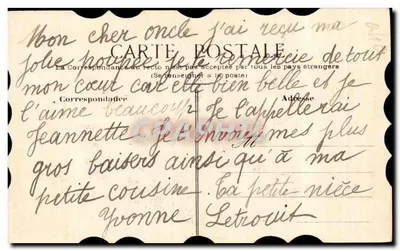 Mon cher oncle j'ai reçu ma
CARTE POSTALE
jolie poupée je te remercie de tout
La Correspondance au recto n'est pas acceptée par tous les pays étrangers
(Se renseigner à la poste)
mon cœur car elle bien belle et je
Correspondance
Adresse
l'aime beaucoup Je l'appellerai
Jeannette. Je t'envoie mes plus
gros baisers ainsi qu'à ma
petite cousine. Ta petite nièce
Yvonne Letrouit